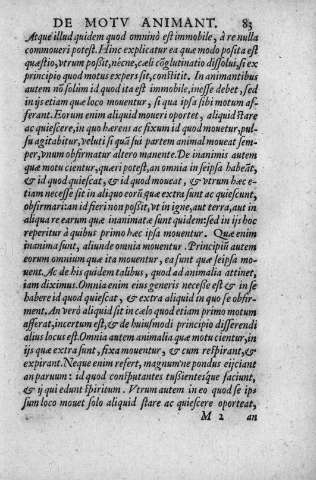 DE MOTV ANIMANT. 83
Atque illud quidem quod omninò est immobile, à re nulla
commoueri potest. Hinc explicatur ea quæ modo posita est
quæstio, vtrum possit, nécne, cæli cõglutinatio dissolui, si ex
principio quod motus expers sit, constitit. In animantibus
autem nõ solùm id quod ita est immobile, inesse debet, sed
in ijs etiam quæ loco mouentur, si qua ipsa sibi motum af-
ferant. Eorum enim aliquid moueri oportet, aliquid stare
ac quiescere, in quo hærens ac fixum id quod mouetur, pul-
su agitabitur, veluti si quã sui partem animal moueat sem-
per, vnum obfirmatur altero manente. De inanimis autem
quæ motu cientur, quæri potest, an omnia in seipsa habeãt,
& id quod quiescat, & id quod moueat, & vtrum hæc e-
tiam necesse sit in aliquo eorũ quæ extra sunt ac quiescunt,
obfirmari: an id fieri non possit, vt in igne, aut terra, aut in
aliqua re earum quæ inanimatæ sunt quidem: sed in ijs hoc
reperitur à quibus primo hæc ipsa mouentur. Quæ enim
inanima sunt, aliunde omnia mouentur. Principiũ autem
eorum omnium quæ ita mouentur, ea sunt quæ seipsa mo-
uent. Ac de his quidem talibus, quod ad animalia attinet,
iam diximus. Omnia enim eius generis necesse est & in se
habere id quod quiescat, & extra aliquid in quo se obfir-
ment. An verò aliquid sit in cælo quod etiam primo motum
afferat, incertum est, & de huiusmodi principio disserendi
alius locus est. Omnia autem animalia quæ motu cientur, in
ijs quæ extra sunt, fixa mouentur, & cum respirant, &
expirant. Neque enim refert, magnum ne pondus eijciant
an paruum: id quod consputantes tussientesque faciunt,
& ij qui edunt spiritum. Vtrum autem in eo quod se ip-
sum loco mouet solo aliquid stare ac quiescere oporteat,
M 2 an